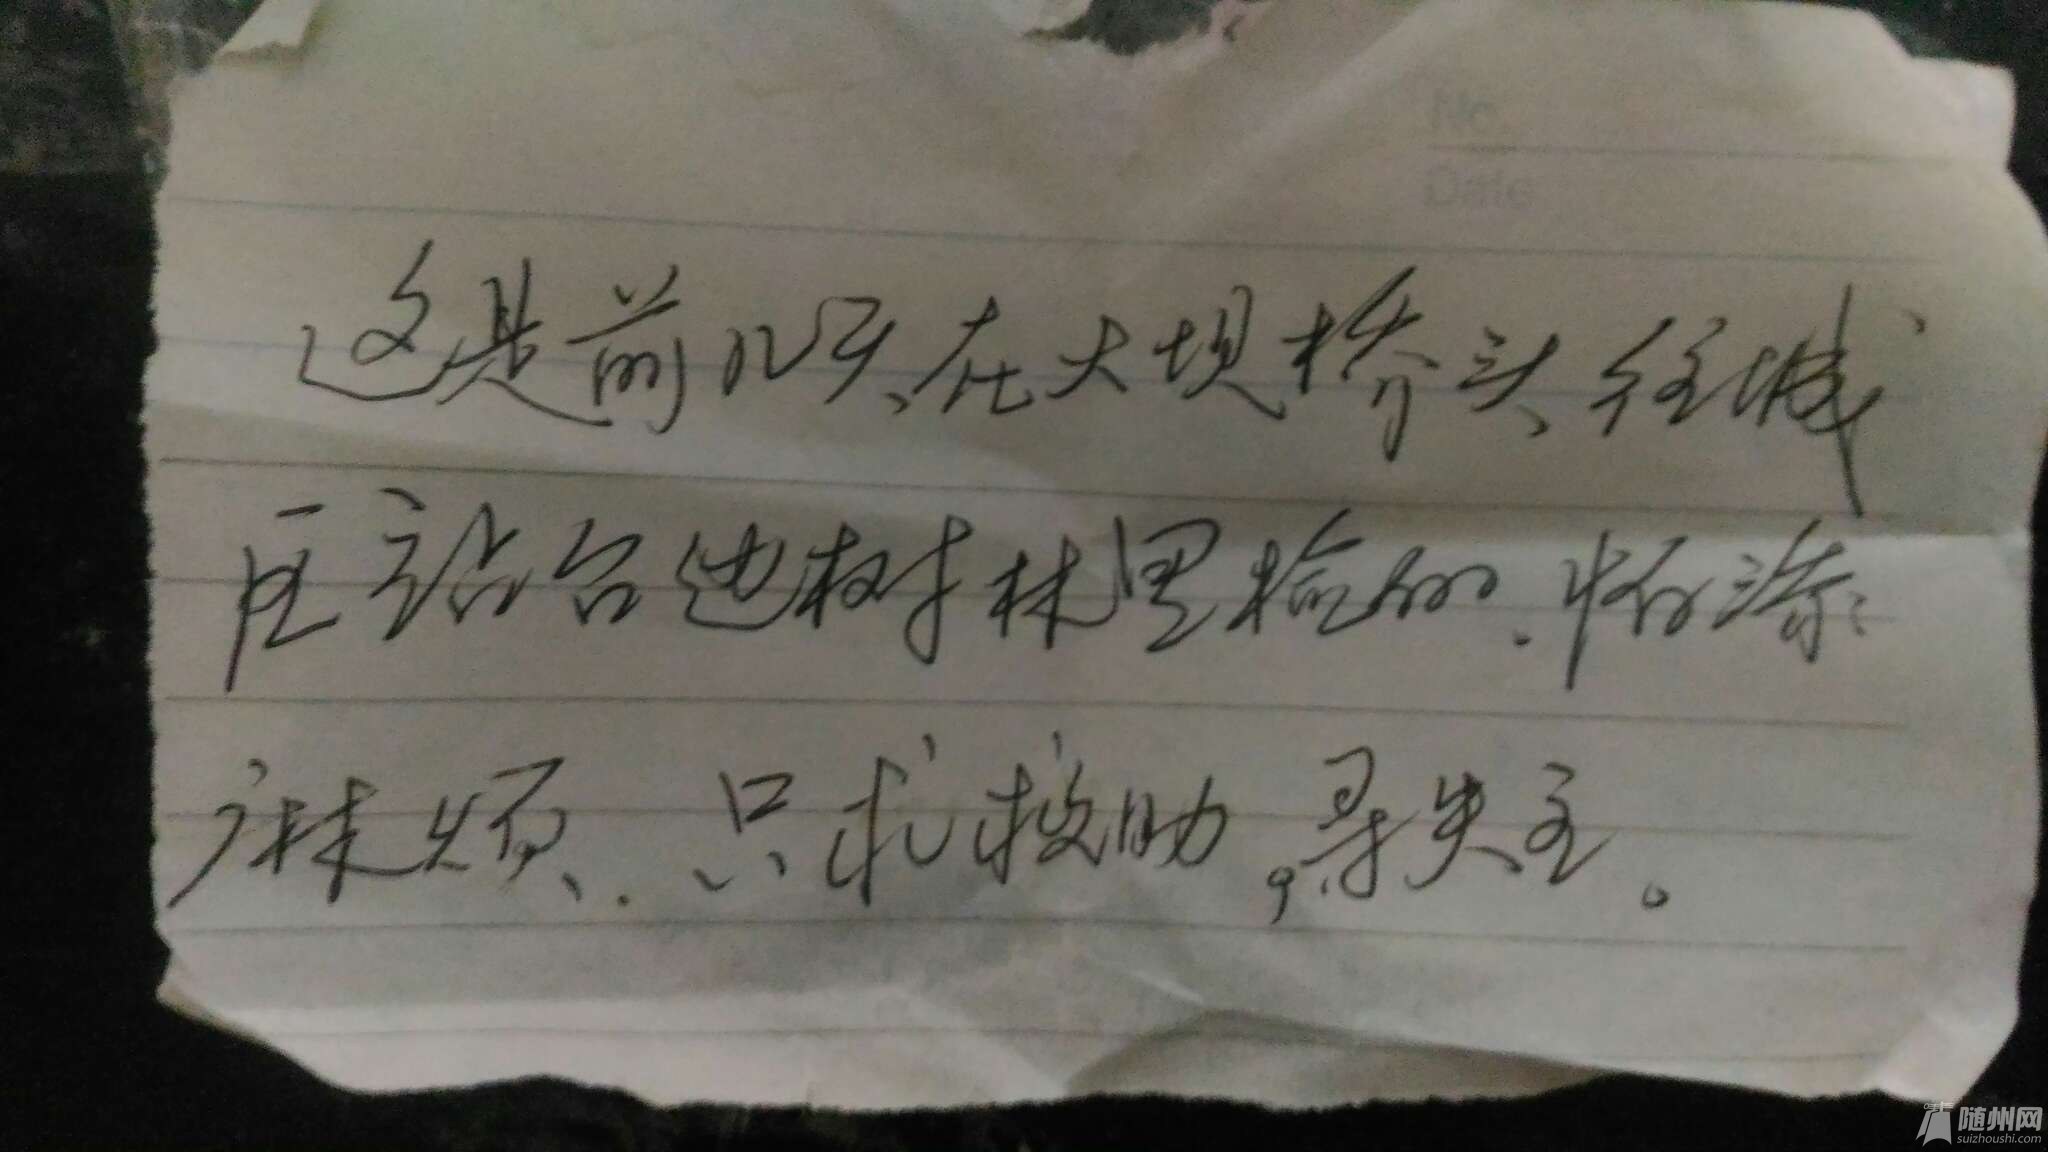 No.
Date
这是前几天在大坝桥头往城
区站台边树林里检的.怀添
麻烦.只求救助,寻失主。
随州网
suizhoushi.com